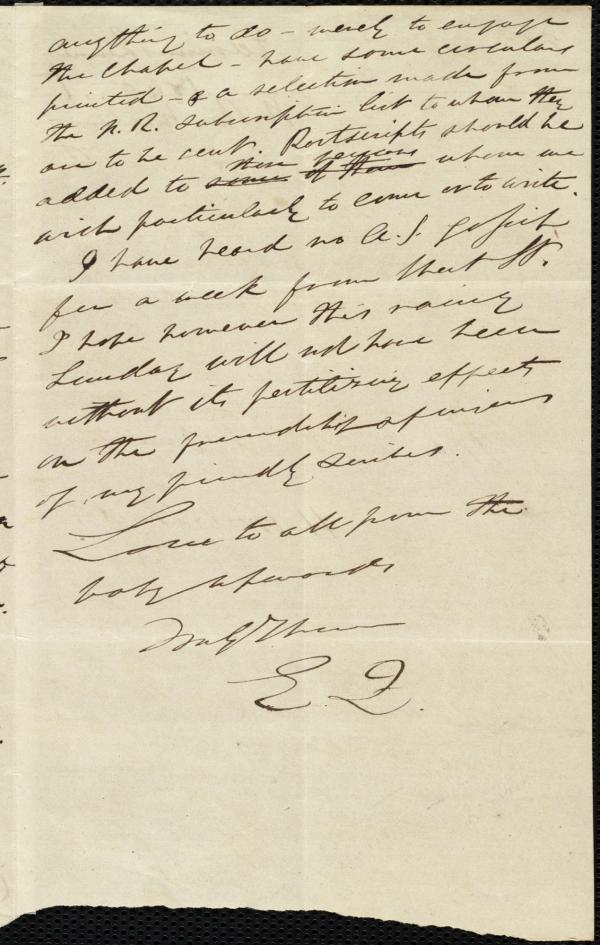 anything to do - merely to engage
the Chapel - have some circulars
printed - & a selection made from
the N. R. subscription list to whom they
are to be sent. Postscripts should be
those persons
added to some of them whom we
wish particularly to come or to write.
I have heard no A. S. gossip
for a week from that St.
I hope however this rainy
Sunday will not have been
without its fertilizing effects
on the friendship
of my friendly scribes.
Love to all from the
baby upwards
E. Q.